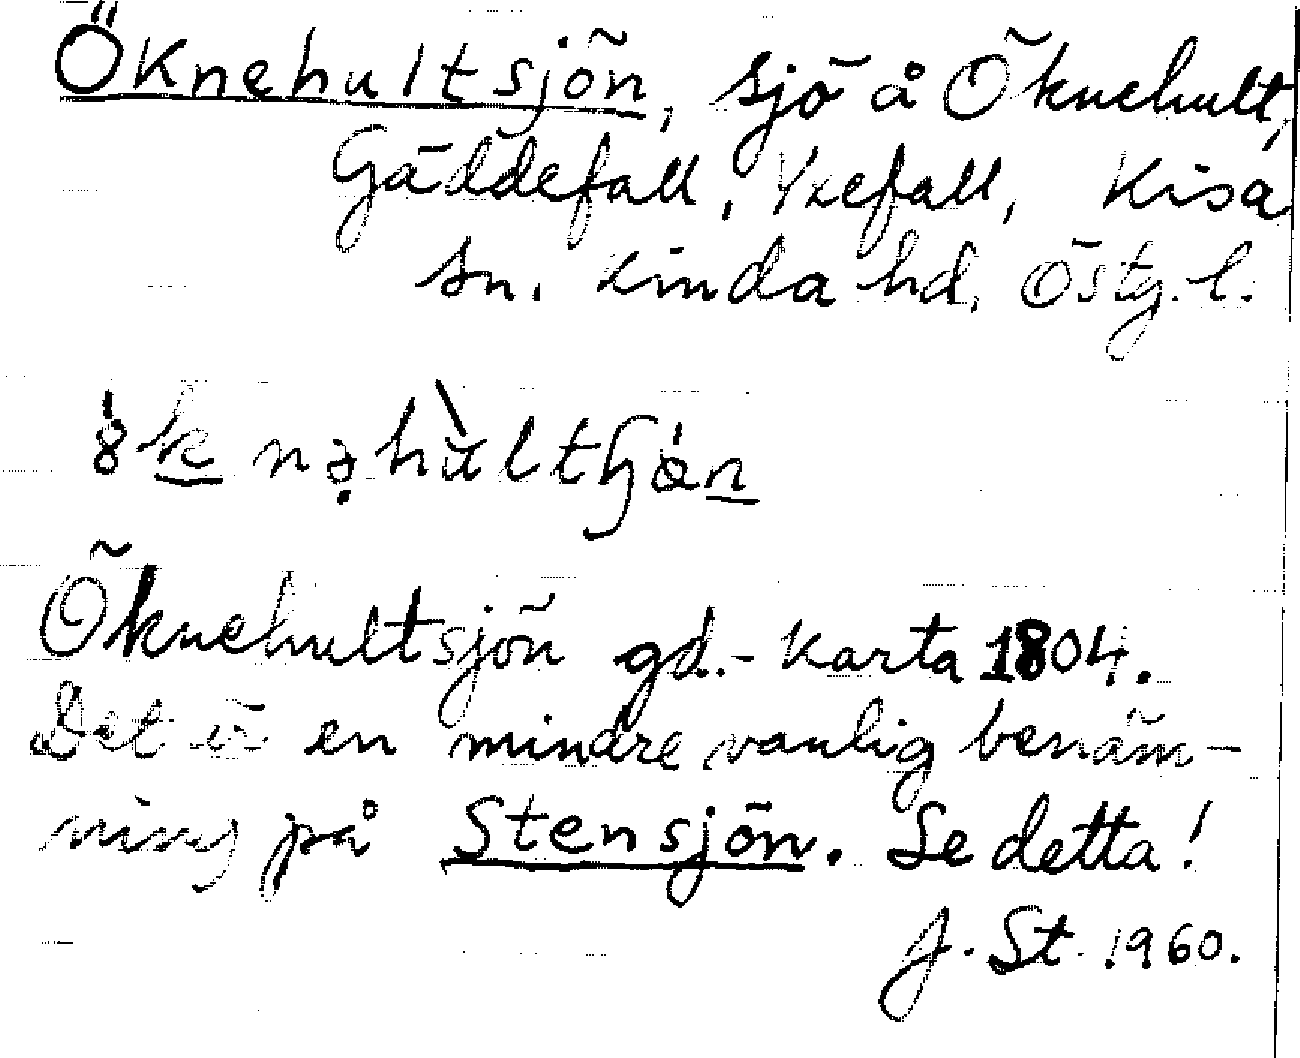 Öknehultsjön, sjö å Öknehult,
Gäddefall, Yxefall, Kisa
sn. Kinda hd. Östg. l.
Öknehultsjön gd.- karta 1804.
Det är en mindre vanlig benäm-
ning på Stensjön. Se detta!
J. St. 1960.